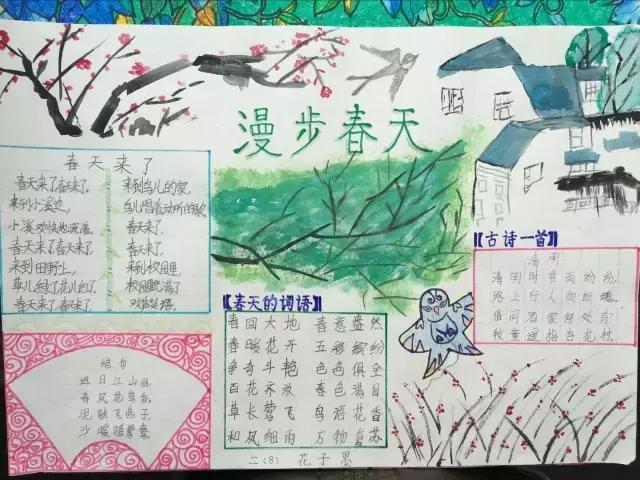 漫步春天
春天来了
春天来了春天来了，
来到小溪边，
小溪欢快地流淌。
春天来了春天来了，
来到田野上，
草儿绿了花儿红了。
春天来了春天来了，
来到鸟儿的家，
鸟儿唱着动听的歌。
春天来了，
春天来了，
来到校园里，
校园里充满了
欢声笑语。
绝句
迟日江山丽，
春风花草香。
泥融飞燕子，
沙暖睡鸳鸯。
【春天的词语】
春回大地 春意盎然
春暖花开 五彩缤纷
争奇斗艳 色色俱全
百花齐放 春色满目
草长莺飞 鸟语花香
和风细雨 万物复苏
【古诗一首】
清明
清明时节雨纷纷，
路上行人欲断魂。
借问酒家何处有？
牧童遥指杏花村。
二（8） 花子墨